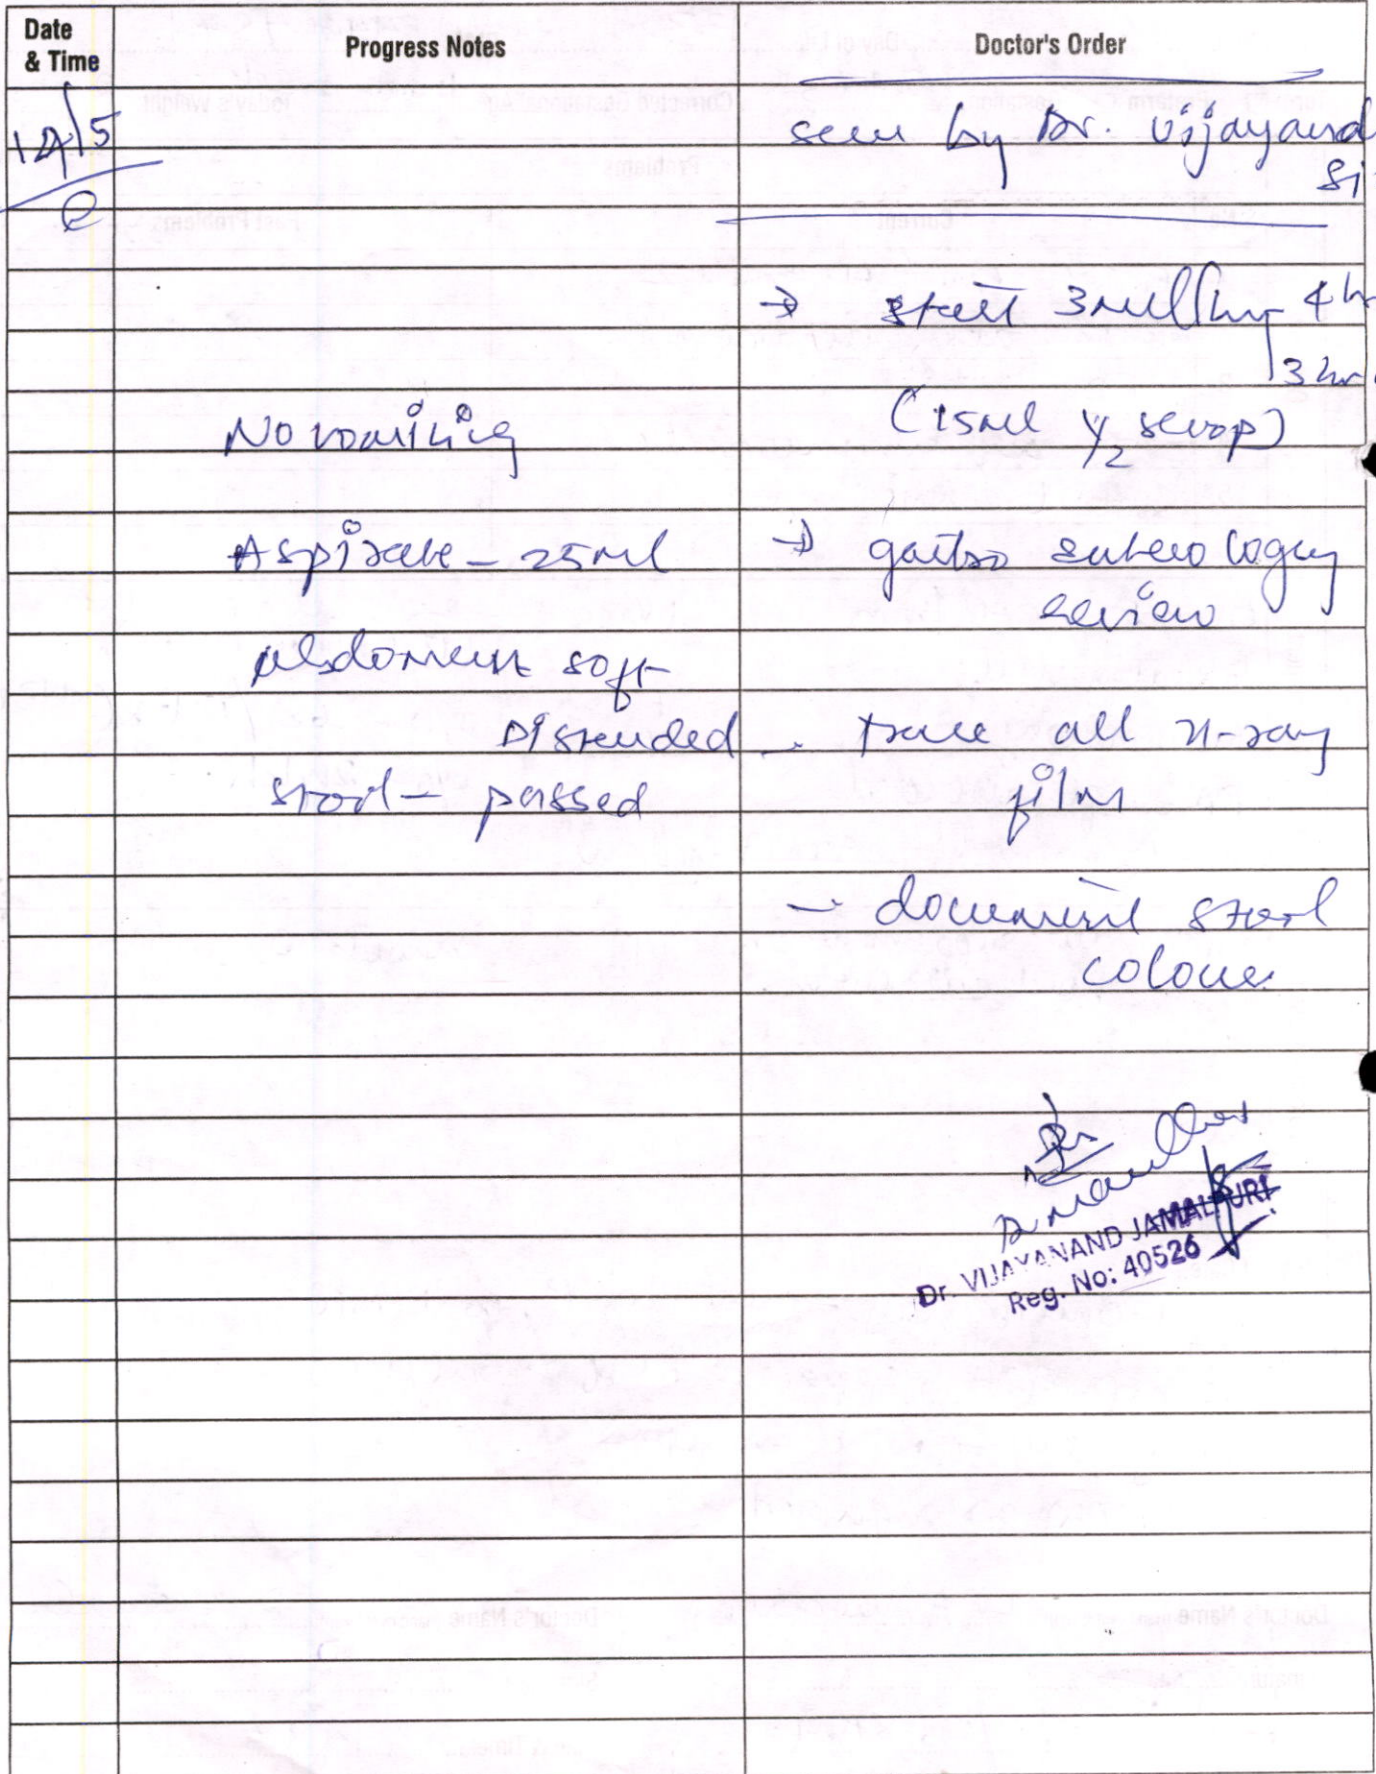 Date
& Time
Progress Notes
Doctor's Order
12/5
seen by Dr. Vijayanand
→ start 3ml/hr 4 hr
3 hr
No vomiting
(15ml 1/2 scoop)
Aspirate - 25ml
→ gastro enterology
review
Abdomen soft
Distended
- trace all x-ray
stool - passed
film
- document stool
colour
Dr. VIJAYANAND JAMALPURI
Reg. No: 40526